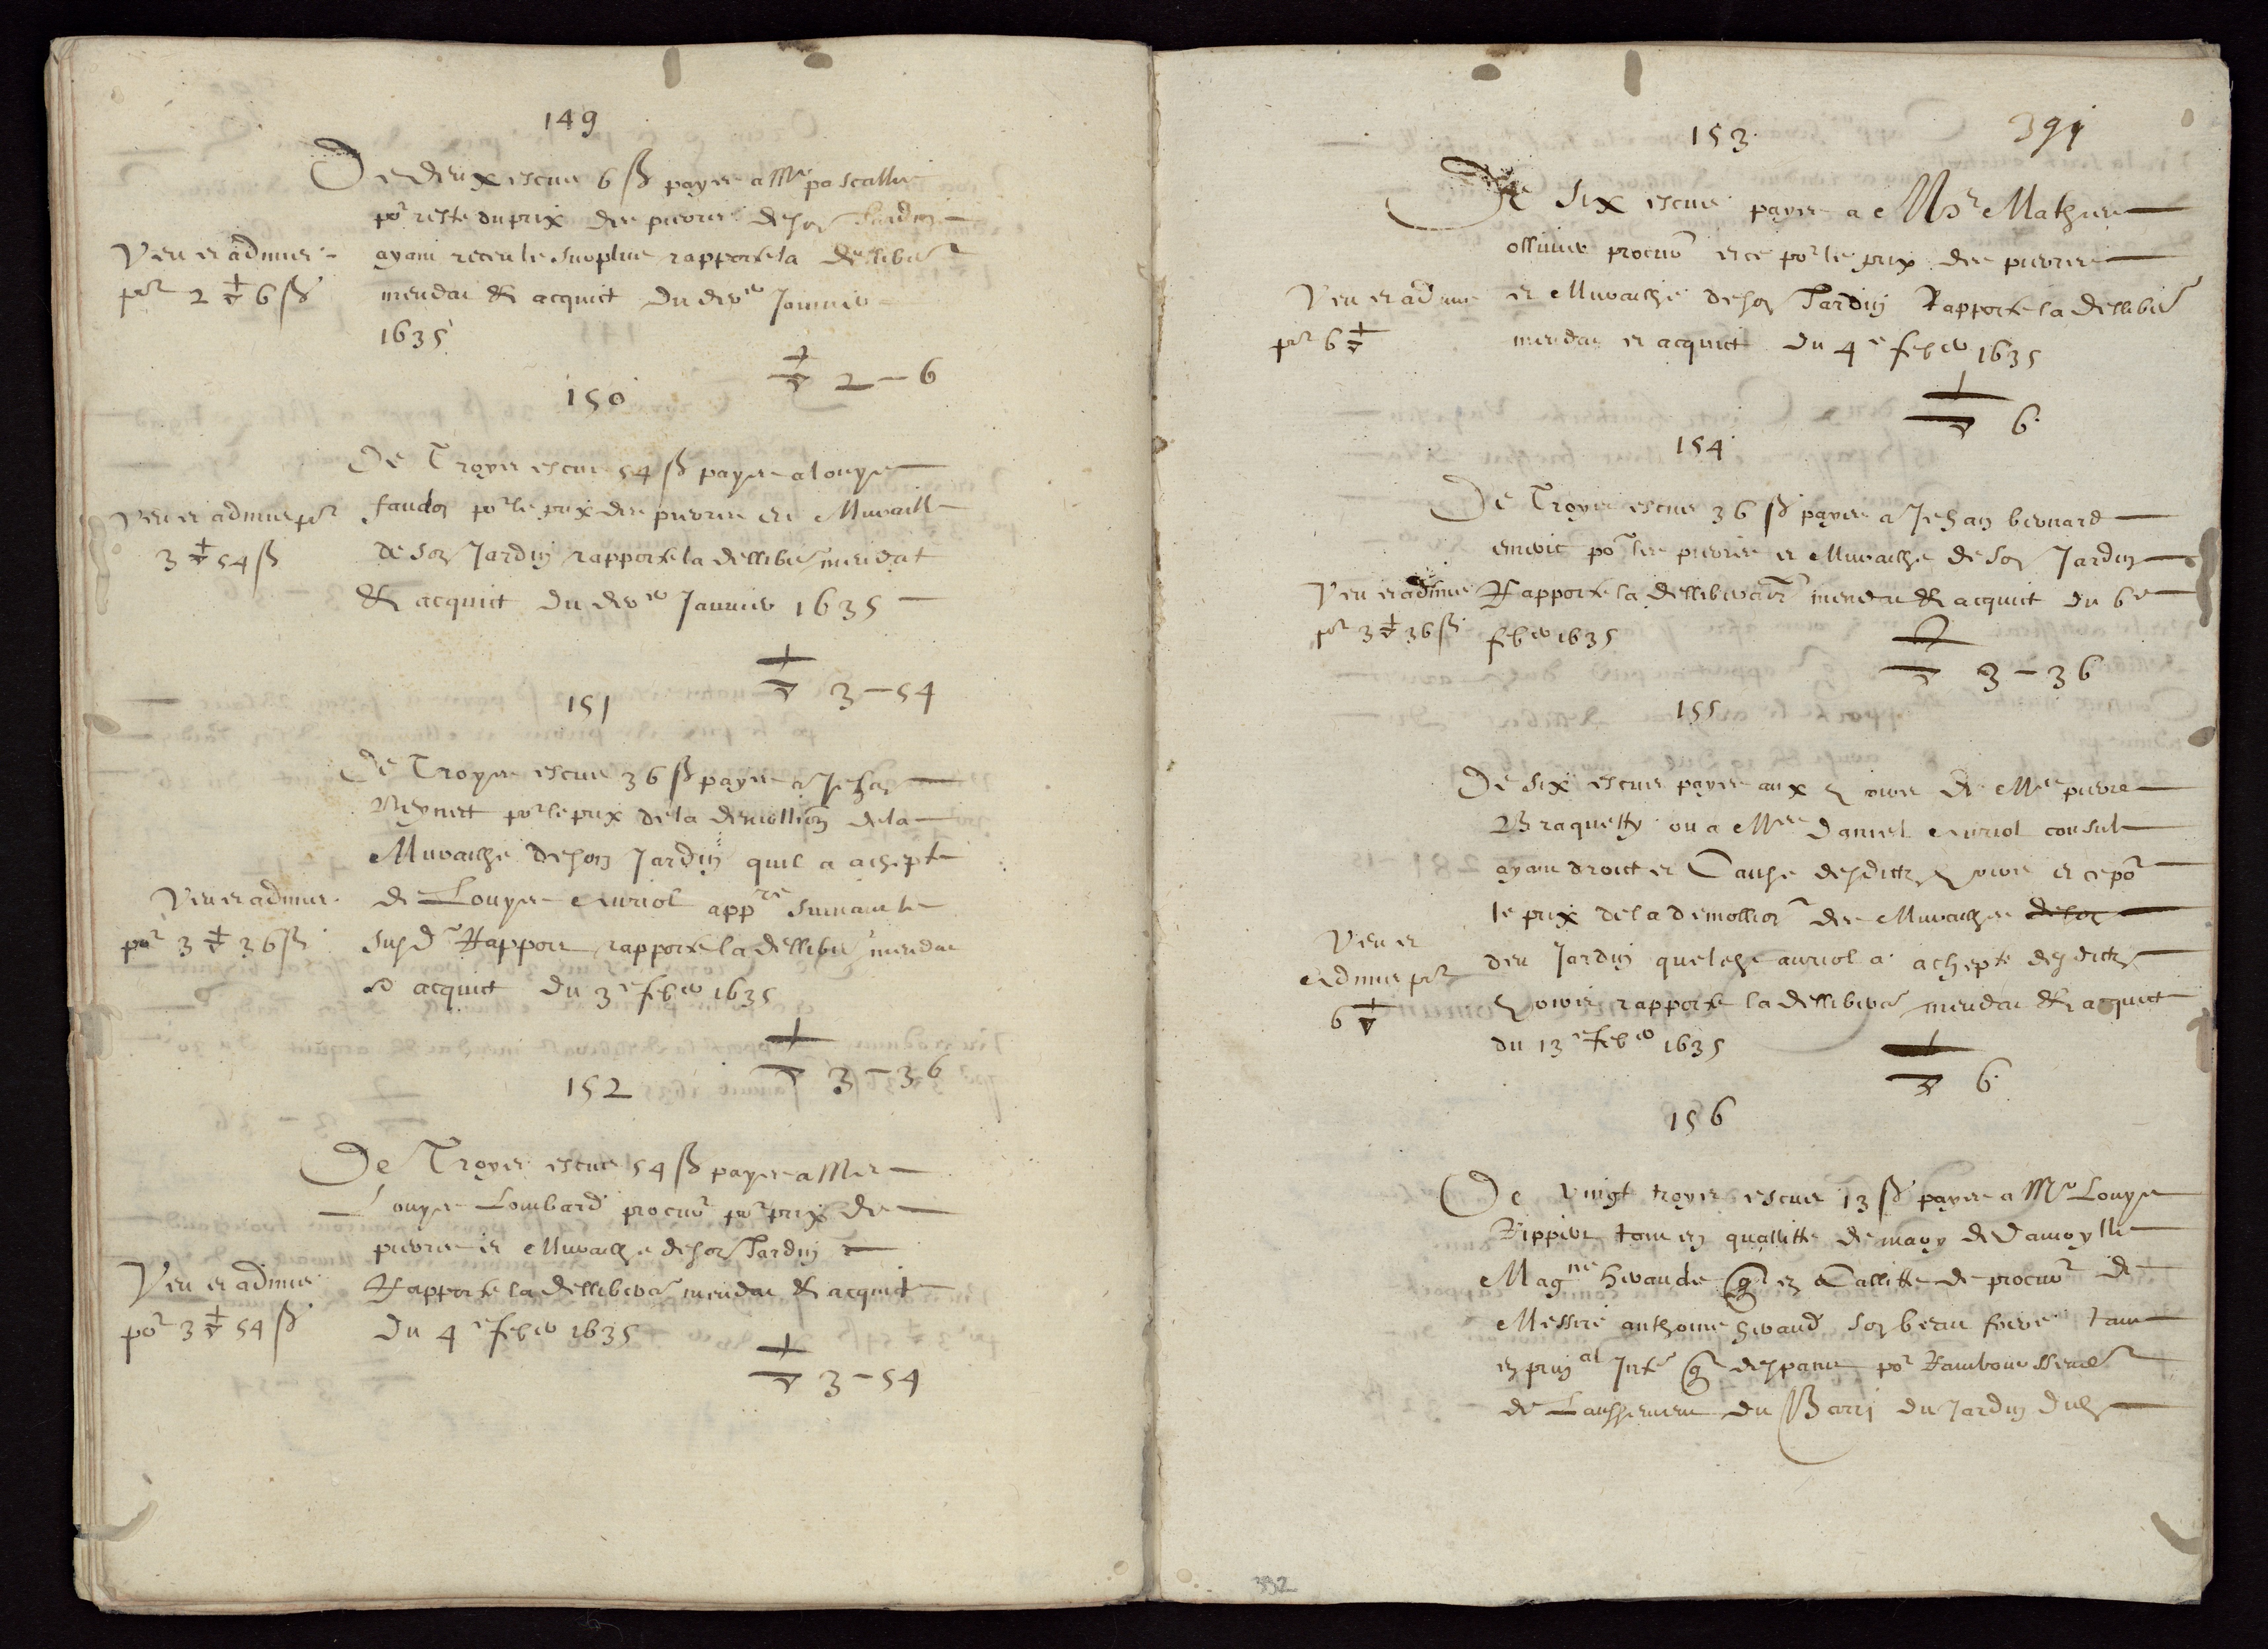 149
De deux escus 6 ß payes a Mre pascallis
por reste du prix des pierres de son Jardin
ayant receu le surplus rapporte la dellibera
mendat & acquict du der er Janvier
1635
Veu et admis
por 2 ▽ 6 ß
▽ 2 - 6
150
De Troyes escus 54 ß payes a louys
faudon por le prix des pierres et Muraille
de son Jardin rapporte la dellibera mendat
& acquict du der er Janvier 1635
Veu et admis por
3 ▽ 54 ß
▽ 3 - 54
151
De Troyes escus 36 ß payes a Jehan
Meynet por le prix de la demollion de la
Muralhe de son Jardin quil a achepte
de Louys Auriol appre suivant le
susd Rapport rapporte la dellibera mendat
& acquict du 3e feber 1635
Veu et admis
por 3 ▽ 36 ß
▽ 3 - 36
152
De Troyes escus 54 ß payes a Mre
Louys Lombard procur por prix des
pierres et Muralhe de son Jardin
Rapporte la dellibera mendat & acquict
du 4e feber 1635
Veu et admis
por 3 ▽ 54 ß
▽ 3 - 54
391
153
De six escus payes a Msr Mathieu
ollivier procur et ce por le prix des pierres
et Muralhe de son Jardin Rapporte la dellibera
mendat et acquict du 4e feber 1635
Veu et admis
por 6 ▽
▽ 6
154
De Troyes escus 36 ß payes a Jehan bernard
por les pierres et Muralhe de son Jardin
Rapporte la delliberaon mendat & acquict du 6e
feber 1635
Veu et admis
por 3 ▽ 36 ß
▽ 3 - 36
155
De six escus payes aux hoirs de Mre pierre
Braquetty ou a Mre Daniel Auriol consul
ayant droict et Cause desdictz hoirs et ce por
le prix de la demollion des Muralhes de son
deu Jardin que led auriol a achepte desdictz
hoirs rapporte la dellibera mendat & acquict
du 13e feber 1635
Veu et
Admis por
6 ▽
▽ 6
156
De vingt troyes escus 13 ß payes a Mre Louys
Rippert tant en quallitte de mary de Damoylle
Magne hvaude q en Callitte de procur de
Messire anthoine hvaud son beau frere tant
en prinal Inte q despans por Rambousseme
de Laussement du Barri du Jardin dud
392